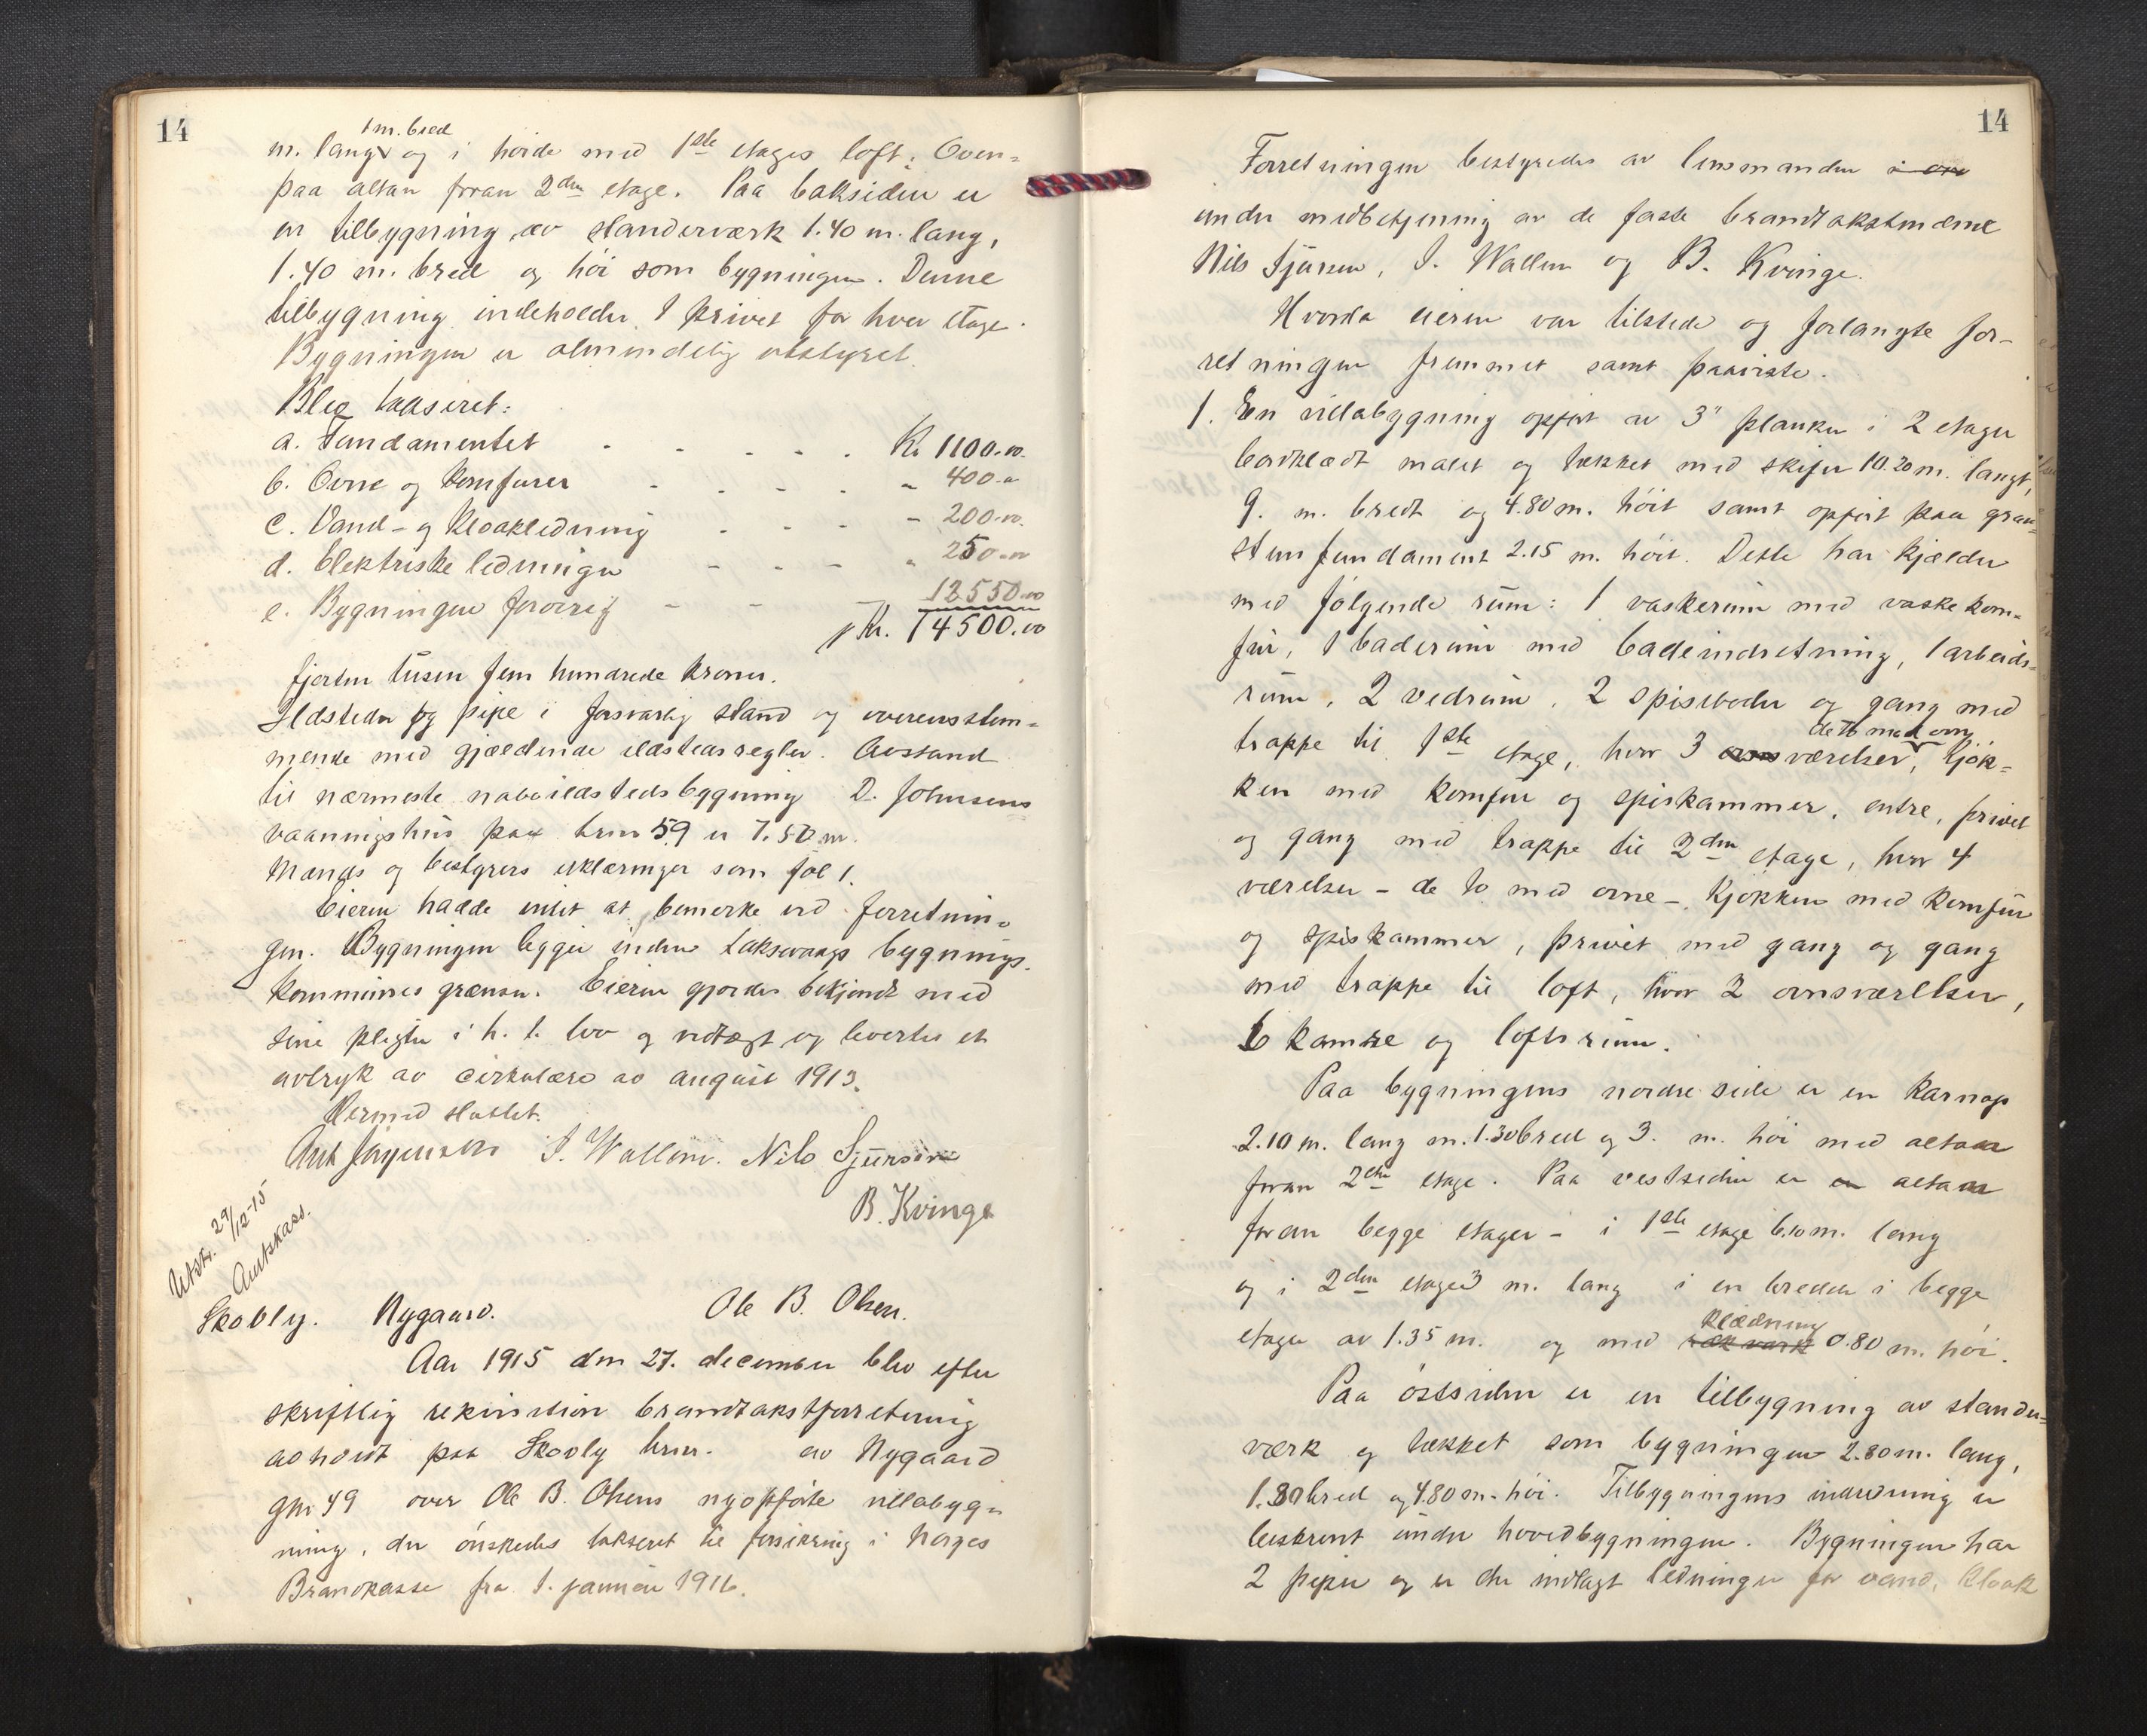 14
1 m. bred
m. lang og i høide med 1ste etages loft. Oven-
paa altan foran 2den etage. Paa baksiden er
en tilbygning av standerværk 1.40 m. lang,
1.40 m. bred og høi som bygningen. Denne
tilbygning indeholder 1 privet for hver etage.
Bygningen er almindelig utstyret.
Blev taksert:
a. Fundamentet - - - - - Kr 1100.00.
b. Ovne og komfurer - - - - " 400.00
c. Vand- og kloakledning - - - " 200.00.
d. Elektriske ledninger - - - " 250.00
e. Bygningen forøvrig - - - 12550.00
Kr. 14500.00
fjorten tusen fem hundrede kroner.
Ildsteder og pipe i forsvarlig stand og overensstem-
mende med gjældende ildstedsregler. Avstand
til nærmeste naboildstedsbygning D. Johnsens
vaaningshus paa brnr 59 er 7.50 m.
Mænds og bestyrers erklæringer som fol 1.
Eieren hadde intet at bemerke ved forretnin-
gen. Bygningen ligger inden Laksevaags bygnings-
kommunes grænser. Eieren gjordes bekjendt med
sine pligter i h. t. lov og vedtægt og levertes et
avtryk av cirkulære av august 1913.
Dermed sluttet.
J. Wallem. Nils Sjursen
B. Kvinge
Utstr. 29/12-15
Amtskass.
Skobly. Nygaard. Ole B. Olsen.
Aar 1915 den 27. december blev efter
skriftlig rekvisition brandtakstforretning
avholdt paa Skovly brnr. av Nygaard
gnr 49 over Ole B. Olsens nyopførte villabyg-
ning, der ønskedes taksert til forsikring i Norges
Brandkasse fra 1. januar 1916.
14
Forretningen bestyredes av lensmanden i ov
under medbetjening av de faste brandtakstmænd
Nils Sjursen, J. Wallem og B. Kvinge.
Hvorda eieren var tilstede og forlangte for-
retningen fremmet samt paaviste.
1. En villabygning opført av 3" planker i 2 etager
bordklædt malet og tækket med skifer 10.20 m. langt,
9. m. bredt og 4.80 m. høit samt opført paa graa-
stensfundament 2.15 m. høit. Dette har kjælder
med følgende rum: 1 vaskerum med vaskekom-
fur, 1 baderum med badeindretning, 1 arbeids-
rum, 2 vedrum, 2 spiseboder og gang med
de to med ovn
trappe til 1ste etage, hvor 3 ovnsværelser, kjøk-
ken med komfur og spiskammer, entre, privet
og gang med trappe til 2den etage, hvor 4
værelser - de to med ovne -, kjøkken med komfur
og spiskammer, privet med gang og gang
med trappe til loft, hvor 2 ovnsværelser,
6 kamre og loftsrum.
Paa bygningens nordre side er en karnap
2.10 m. lang m. 1.30 bred og 3. m. høi med altan
foran 2den etage. Paa vestsiden er en altan
foran begge etager - i 1ste etage 6.10 m. lang
og i 2den etage 3 m. lang i en bredde i begge
klædning
etager av 1.35 m. og med rækværk 0.80 m. høi.
Paa østsiden er en tilbygning av stander-
værk og tækket som bygningen 2.80 m. lang,
1.80 bred og 4.80 m. høi. Tilbygningens indredning er
beskrevet under hovedbygningen. Bygningen har
2 piper og er der indlagt ledninger for vand, kloak